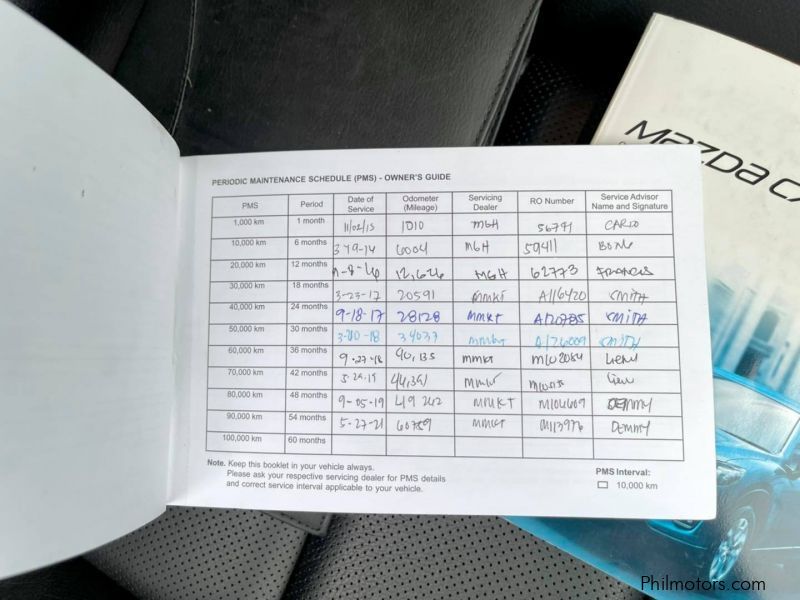 MAZDA
PERIODIC MAINTENANCE SCHEDULE (PMS) - OWNER'S GUIDE
PMS Period Date of Service Odometer (Mileage) Servicing Dealer RO Number Service Advisor Name and Signature
1,000 km 1 month 11/02/15 1010 MGH 56791 CARLO
10,000 km 6 months 6004 MGH 59411
20,000 km 12 months 12,626 MGH 62773 FRANCIS
30,000 km 18 months 3-23-17 20591 MMKT A116420 SMITH
40,000 km 24 months 9-18-17 28128 MMKT A120785 SMITH
50,000 km 30 months 34037 MMKT SMITH
60,000 km 36 months 9-27-18 40,135 MMKT M102084
70,000 km 42 months 44,361 MMKT
80,000 km 48 months 9-05-19 49242 MMKT M106609 DEMMY
90,000 km 54 months 5-27-21 60789 MMKT M113976 DEMMY
100,000 km 60 months
Note. Keep this booklet in your vehicle always.
Please ask your respective servicing dealer for PMS details
and correct service interval applicable to your vehicle.
PMS Interval:
10,000 km
Philmotors.com